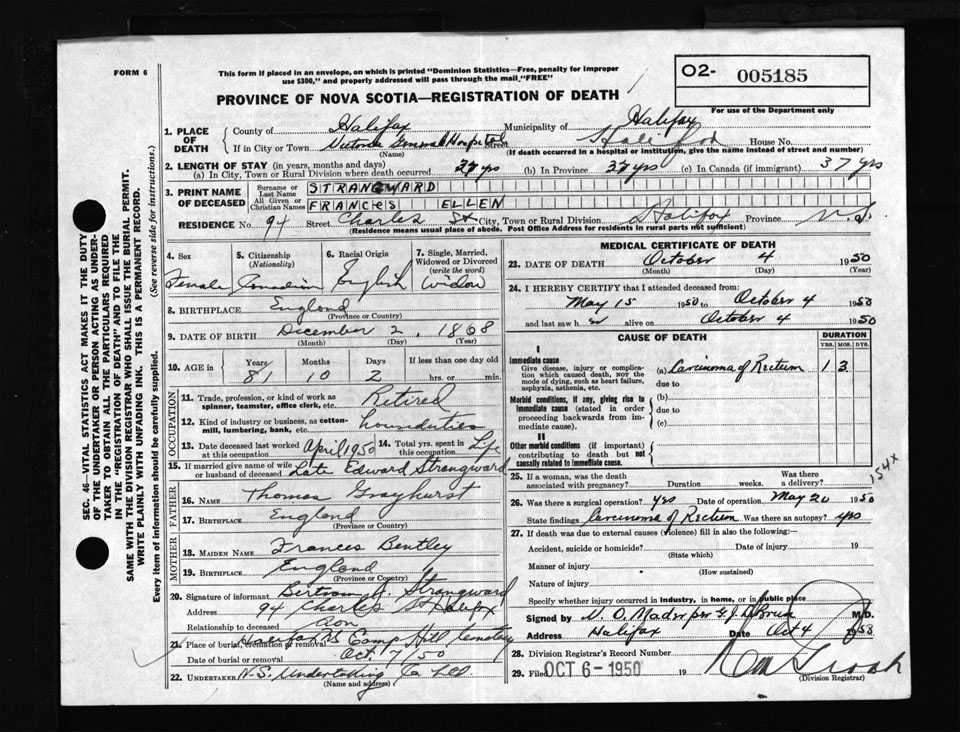 FORM 6
This form if placed in an envelope, on which is printed "Dominion Statistics—Free, penalty for improper
use $300," and properly addressed will pass through the mail "FREE"
O2- 005185
PROVINCE OF NOVA SCOTIA—REGISTRATION OF DEATH
For use of the Department only
1. PLACE OF DEATH
County of Halifax Municipality of Halifax
If in City or Town Victoria General Hospital Street House No.
(Name) (If death occurred in a hospital or institution, give the name instead of street and number)
2. LENGTH OF STAY (in years, months and days)
(a) In City, Town or Rural Division where death occurred 37 yrs (b) In Province 37 yrs (c) In Canada (if immigrant) 37 yrs
3. PRINT NAME OF DECEASED
Surname or Last Name STRANGWARD
All Given or Christian Names FRANCES ELLEN
RESIDENCE No. 94 Street Charles St City, Town or Rural Division Halifax Province N.S.
(Residence means usual place of abode. Post Office Address for residents in rural parts not sufficient)
4. Sex Female
5. Citizenship (Nationality) Canadian
6. Racial Origin English
7. Single, Married, Widowed or Divorced (write the word) Widow
8. BIRTHPLACE England
(Province or Country)
9. DATE OF BIRTH December 2, 1868
(Month) (Day) (Year)
10. AGE in Years Months Days If less than one day old
81 10 2 hrs. or min.
OCCUPATION
11. Trade, profession, or kind of work as spinner, teamster, office clerk, etc. Retired
12. Kind of industry or business, as cotton-mill, lumbering, bank, etc.
13. Date deceased last worked at this occupation April 1950
14. Total yrs. spent in this occupation Life
15. If married give name of wife or husband of deceased Late Edward Strangward
FATHER
16. NAME Thomas Grayhurst
17. BIRTHPLACE England
(Province or Country)
MOTHER
18. MAIDEN NAME Frances Bentley
19. BIRTHPLACE England
(Province or Country)
20. Signature of informant Bertram A. Strangward
Address 94 Charles St Halifax
Relationship to deceased Son
21. Place of burial, cremation or removal Halifax NS Camp Hill Cemetery
Date of burial or removal Oct. 7/50
22. UNDERTAKER N.S. Undertaking Co Ltd
(Name and address)
MEDICAL CERTIFICATE OF DEATH
23. DATE OF DEATH October 4 1950
(Month) (Day) (Year)
24. I HEREBY CERTIFY that I attended deceased from:
May 15 1950 to October 4 1950
and last saw h er alive on October 4 1950
CAUSE OF DEATH DURATION
YRS. MOS. DYS.
I
Immediate cause
Give disease, injury or complication which caused death, not the mode of dying, such as heart failure, asphyxia, asthenia, etc.
(a) Carcinoma of Rectum 1 3
due to
Morbid conditions, if any, giving rise to immediate cause (stated in order proceeding backwards from immediate cause).
(b)
due to
(c)
II
Other morbid conditions (if important) contributing to death but not causally related to immediate cause.
25. If a woman, was the death associated with pregnancy? Duration weeks. Was there a delivery?
154X
26. Was there a surgical operation? yes Date of operation May 20 1950
State findings Carcinoma of Rectum Was there an autopsy? yes
27. If death was due to external causes (violence) fill in also the following:—
Accident, suicide or homicide? Date of injury 19
(State which)
Manner of injury
(How sustained)
Nature of injury
Specify whether injury occurred in industry, in home, or in public place
Signed by M.D.
Address Halifax Date Oct 4
28. Division Registrar's Record Number
29. Filed OCT 6 - 1950 19
(Division Registrar)
SEC. 46—VITAL STATISTICS ACT MAKES IT THE DUTY
OF THE UNDERTAKER OR PERSON ACTING AS UNDER-
TAKER TO OBTAIN ALL THE PARTICULARS REQUIRED
IN THE "REGISTRATION OF DEATH" AND TO FILE THE
SAME WITH THE DIVISION REGISTRAR WHO SHALL ISSUE THE BURIAL PERMIT.
WRITE PLAINLY WITH UNFADING INK. THIS IS A PERMANENT RECORD.
Every item of information should be carefully supplied. (See reverse side for instructions.)